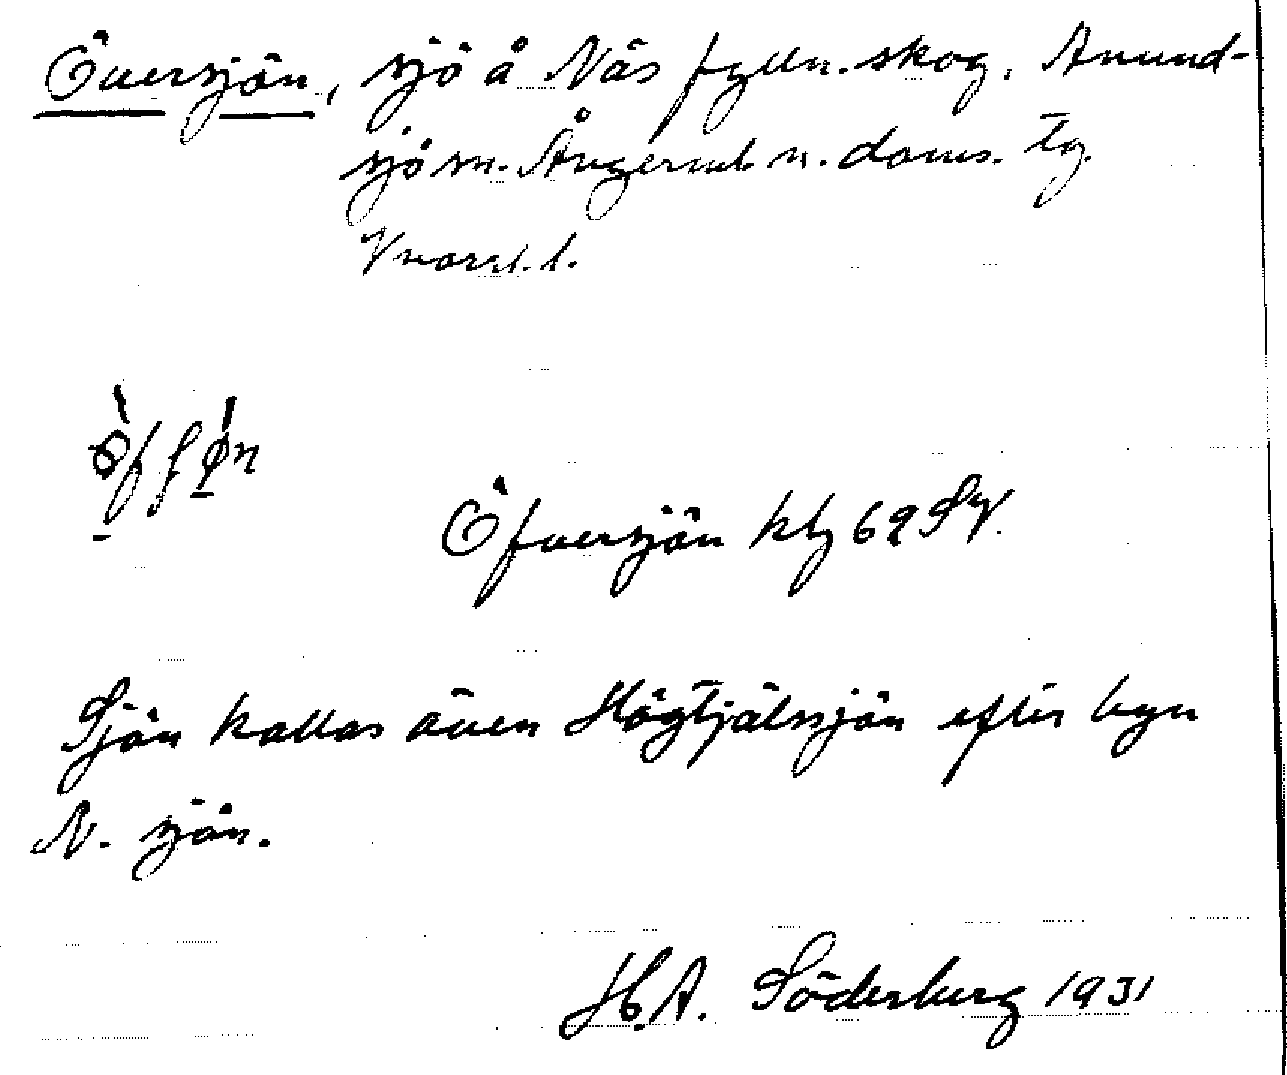 Översjön, sjö å Näs fylln.skog, Anund-
sjö sn. Ångerml. n. doms. tg
V norrl. l.
Öfversjön kbl 62 SV.
Sjön kallas även Högtjälssjön efter byn
N. sjön.
H.A. Söderberg 1931